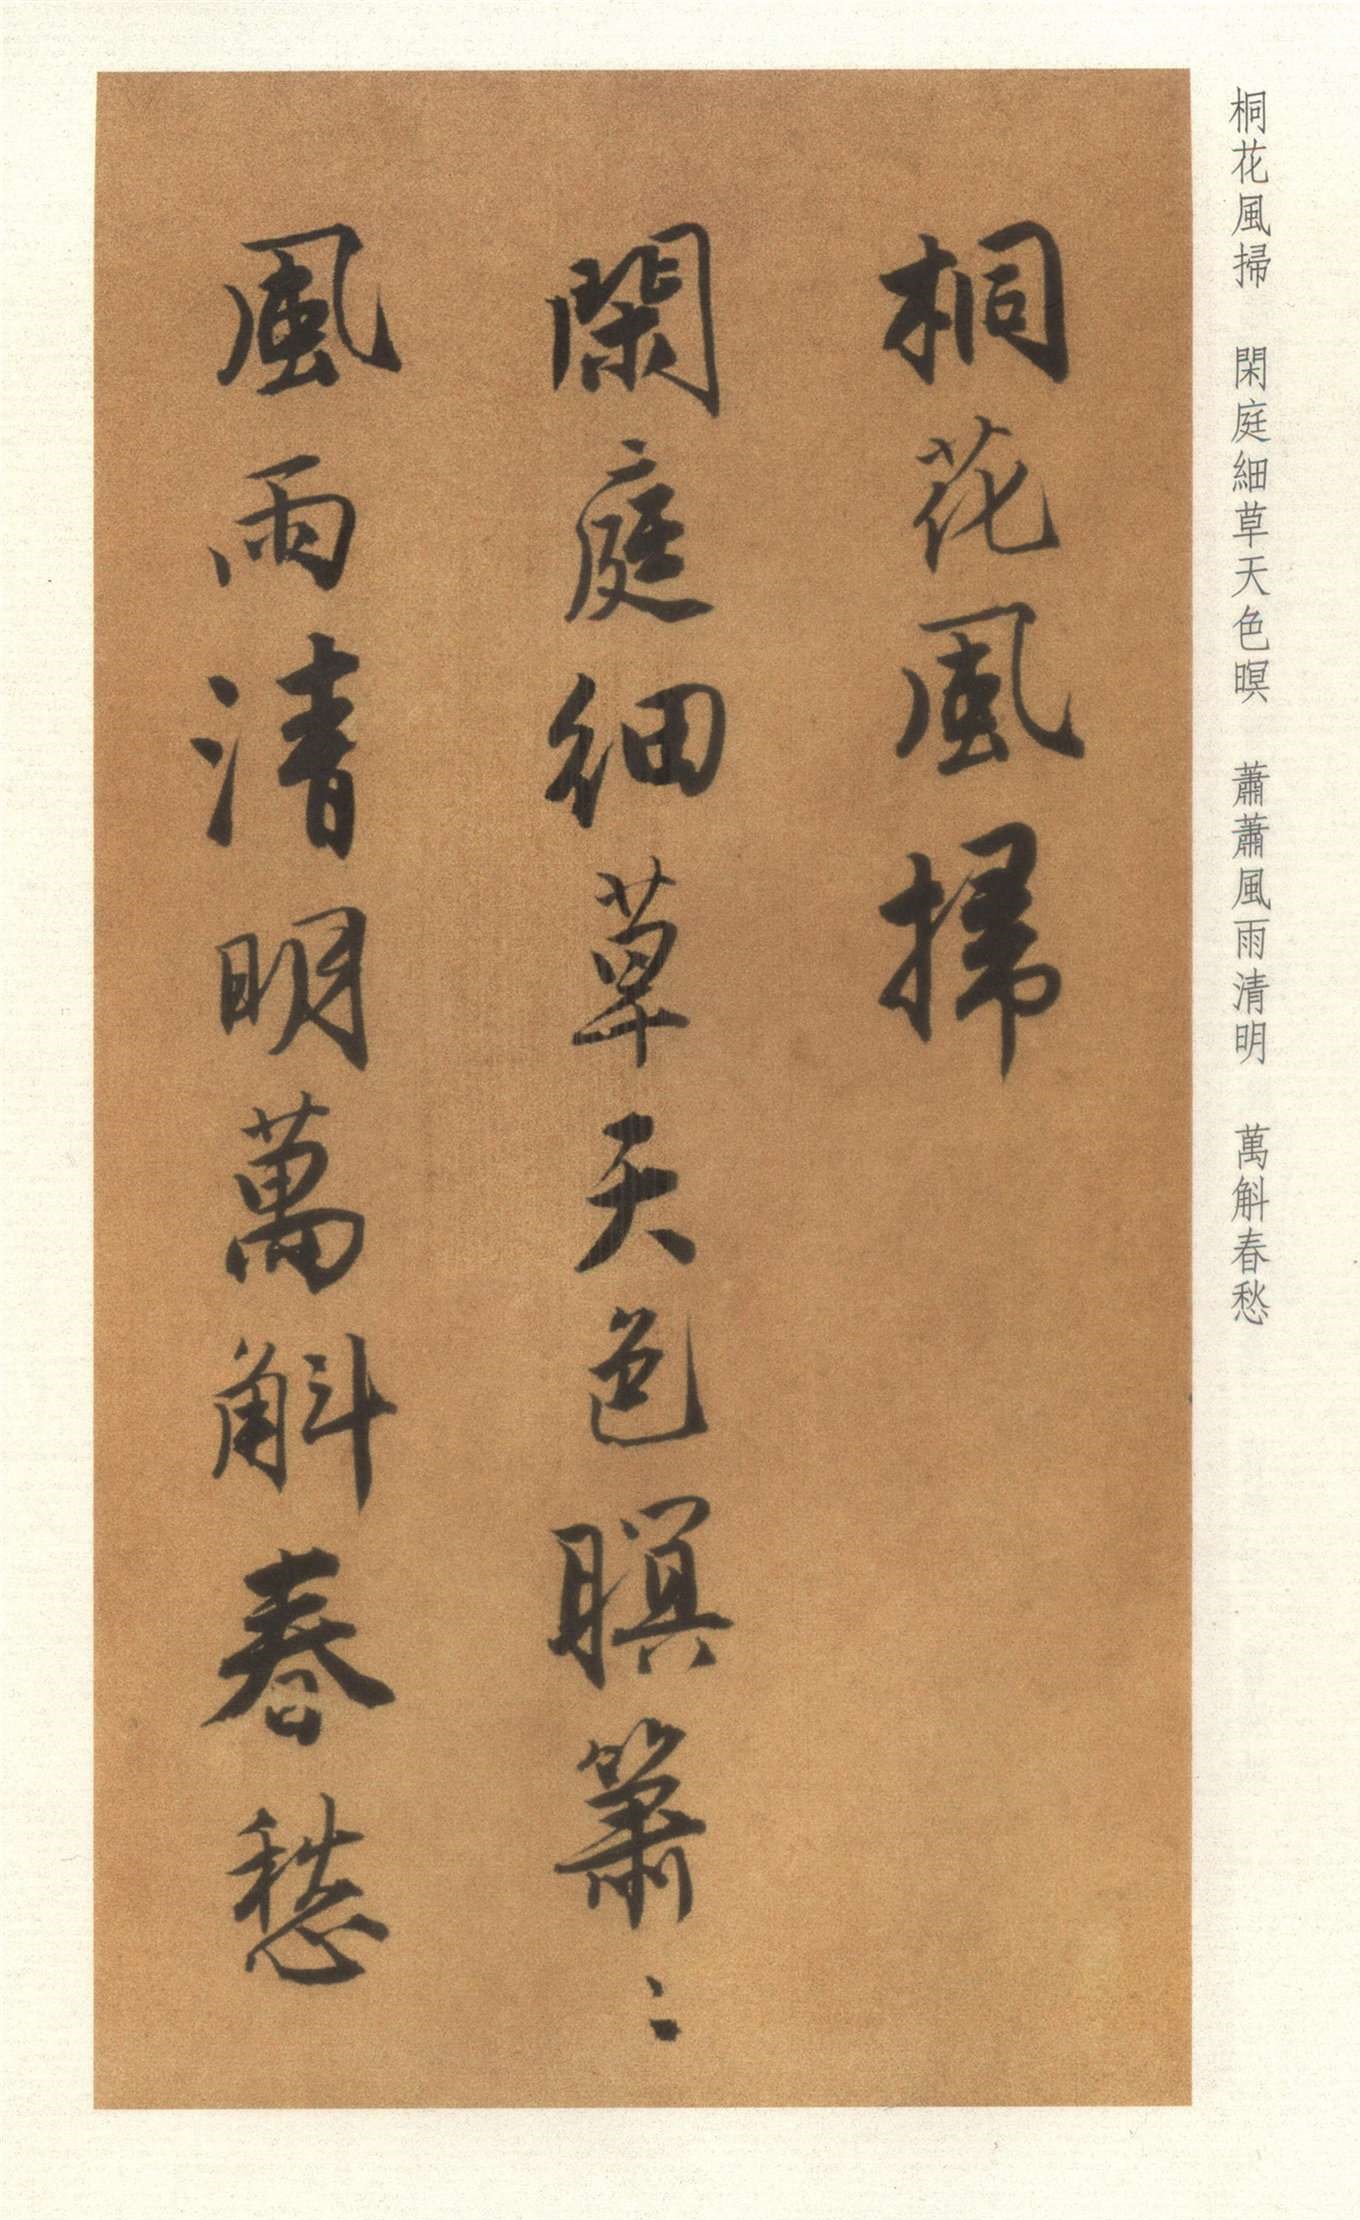 桐花風掃　閑庭細草天色暝　蕭蕭風雨清明　萬斛春愁
桐花風掃
閑庭細草天色暝蕭〻
風雨清明萬斛春愁